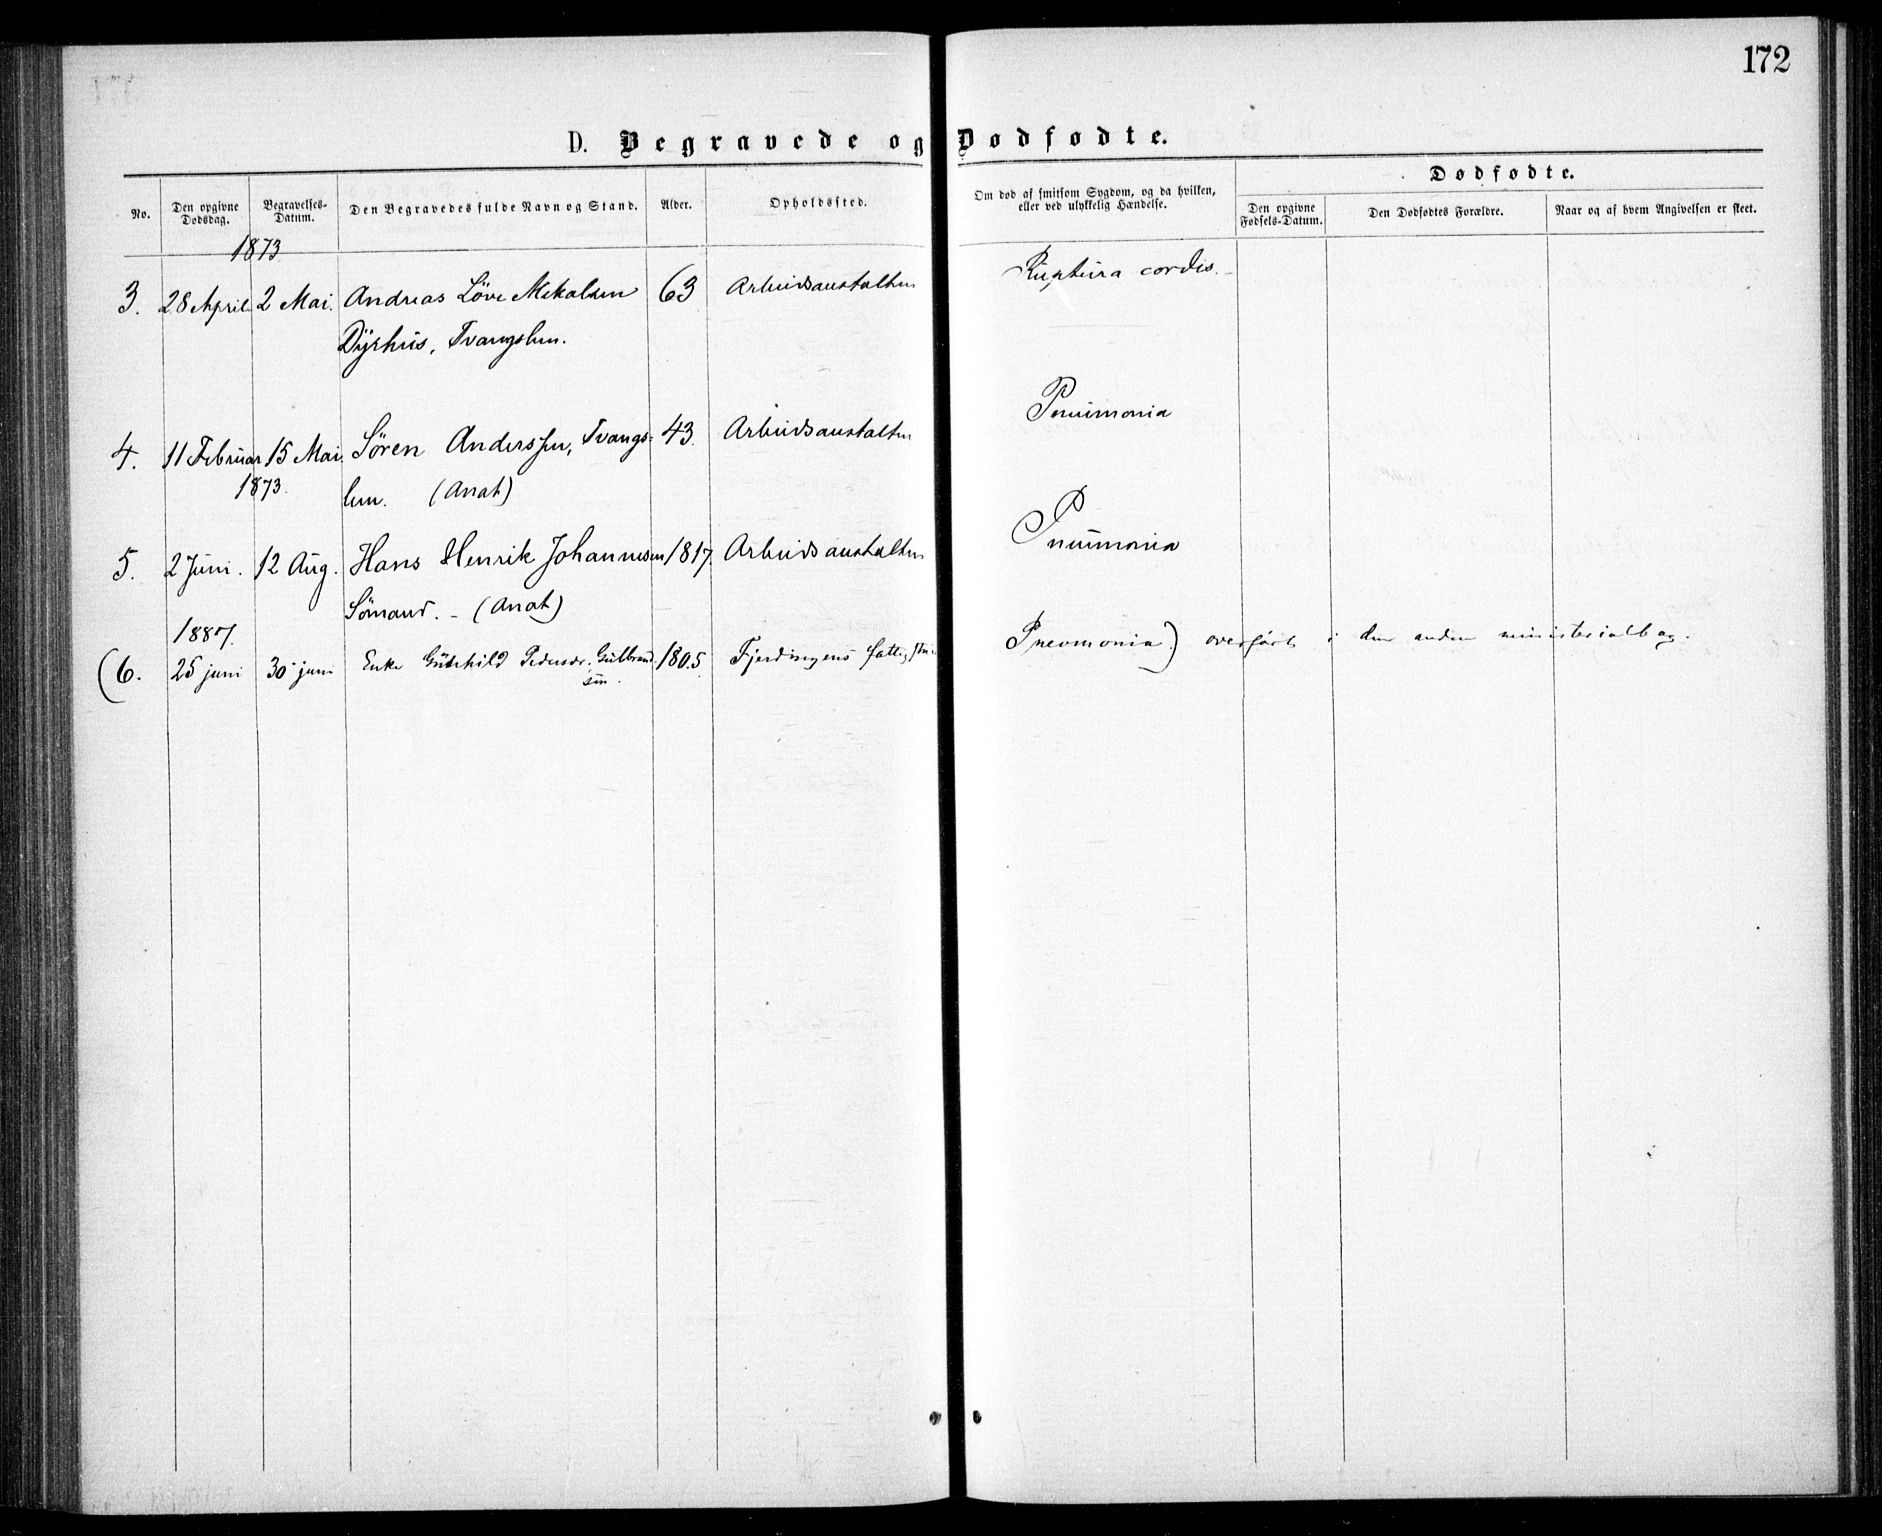 172
D. Begravede og Dødfødte.
No. Den opgivne Dødsdag. Begravelses-Datum. Den Begravedes fulde Navn og Stand. Alder. Opholdssted. Om død af smitsom Sygdom, og da hvilken, eller ved ulykkelig Hændelse. Dødfødte.
Den opgivne Fødsels-Datum. Den Dødfødtes Forældre. Naar og af hvem Angivelsen er skeet.
1873
3. 28 April 2 Mai. Andreas Löve Mekalsen 63 Arbeidsanstalten Ruptura cordis.
Dyrhus, Tvangslem.
4. 11 Februar 15 Mai. Søren Anderssen, Tvangs- 43. Arbeidsanstalten Pneumonia
1873. lem. (Anat)
5. 2 Juni. 12 Aug. Hans Henrik Johannesen 1817. Arbeidsanstalten Pneumonia
Sömand. - (Anat)
1887.
(6. 25 juni 30 juni Enke Gunhild Pedersdr. Gulbrand- 1805. Fjerdingens fattig Pneomonia.) overført i den anden ministerialbog.
sen.